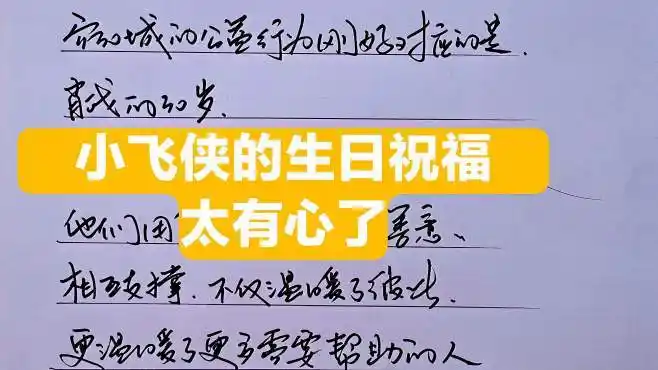 城的公益行为刚好对应的是.
肖战的30岁.
小飞侠的生日祝福
太有心了
他们用 善意、
相互支撑.不仅温暖了彼此.
更温暖了更多需要帮助的人